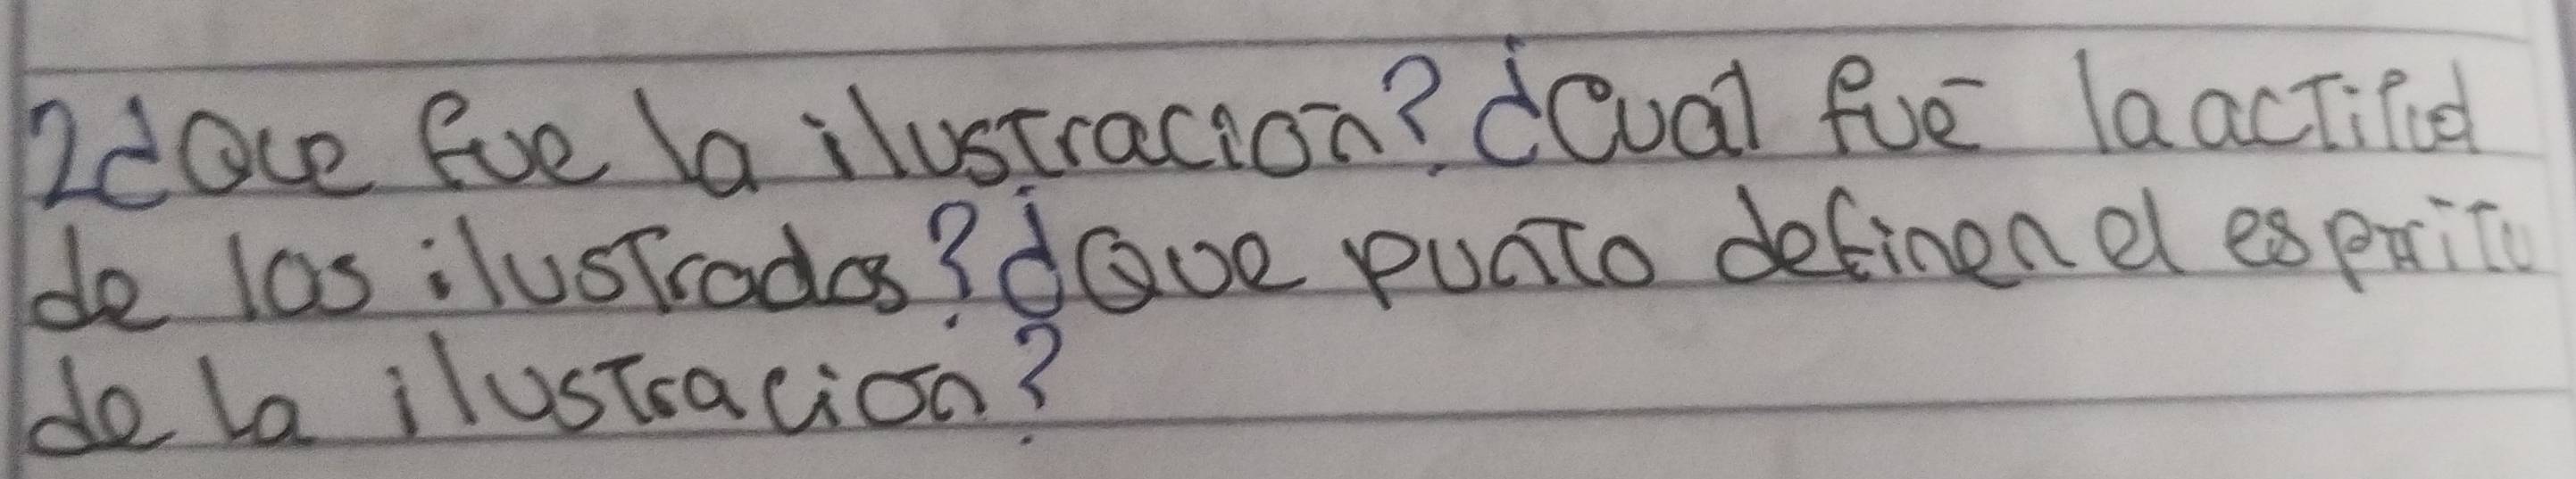 2¿Que fue la ilustración? ¿Cuál fué la actitud
de los ilustrados? ¿Que punto definen el espritu
de la ilustracion?